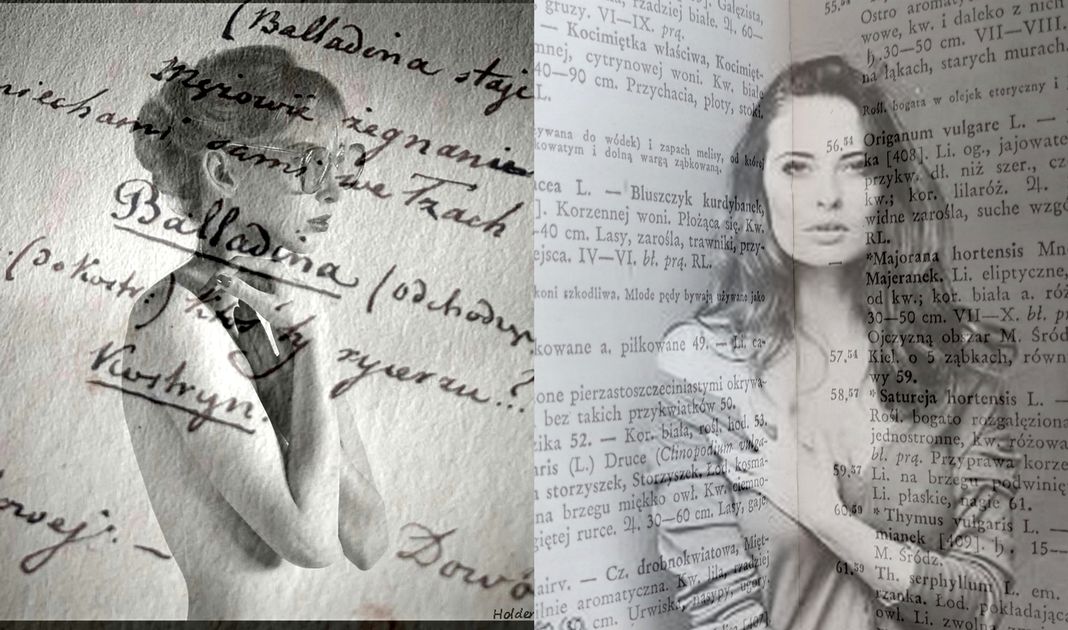 (Balladina staje
Mężowie żegnanie
niechami sami we łzach
Balladina (odchodząc
(do Kostr.) Któś ty rycerzu...?
Kostryn.
owej. —
Dowó
Holden
rzadziej białe. ♃. 60—
gruzy. VI—IX. prą.
— Kocimiętka właściwa, Kocimięt-
mnej, cytrynowej woni. Kw. białe
40—90 cm. Przychacia, płoty, stoki.
L.
zywana do wódek) i zapach melisy, od której
kowatym i dolną wargą ząbkowaną.
acea L. — Bluszczyk kurdybanek,
]. Korzennej woni. Płożąca się. Kw.
-40 cm. Lasy, zarośla, trawniki, przy-
ejsca. IV—VI. bł. prą. RL.
koni szkodliwa. Młode pędy bywają używane jako
kowane a. piłkowane 49. — Li. ca-
one pierzastoszczeciniastymi okrywa-
bez takich przykwiatków 50.
zika 52. — Kor. biała, rośl. hod. 53.
aris (L.) Druce (Clinopodium vulga-
a storzyszek, Storzyszek. Łod. kosma-
na brzegu miękko owł. Kw. ciemno-
giętej rurce. ♃. 30—60 cm. Lasy, gaje.
airv. — Cz. drobnokwiatowa, Mięt-
ilnie aromatyczna. Kw. lila, rzadziej
cm. Urwiska, nasypy, ugory.
[407].
55,54
Ostro aromatyc
wowe, kw. i daleko z nich
♄. 30—50 cm. VII—VIII.
na łąkach, starych murach.
Rośl. bogata w olejek eteryczny i
56,54 Origanum vulgare L. —
ka [408]. Li. og., jajowate
przykw. dł. niż szer., cz
kw.; kor. lilaróż. ♃.
widne zarośla, suche wzgó
RL.
*Majorana hortensis Mn
Majeranek. Li. eliptyczne,
od kw.; kor. biała a. róż
30—50 cm. VII—X. bł. p
Ojczyzną obszar M. Śród
57,54 Kiel. o 5 ząbkach, równ
wy 59.
58,57 *Satureja hortensis L. —
Rośl. bogato rozgałęziona
jednostronne, kw. różowa
bł. prą. Przyprawa korze
59,57 Li. na brzegu podwinię
Li. płaskie, nagie 61.
60,59 *Thymus vulgaris L. —
mianek [409]. ♄. 15—
M. Śródz.
61,59 Th. serphyllum L. em.
rzanka. Łod. pokładając
owł. Li. zwolna zw